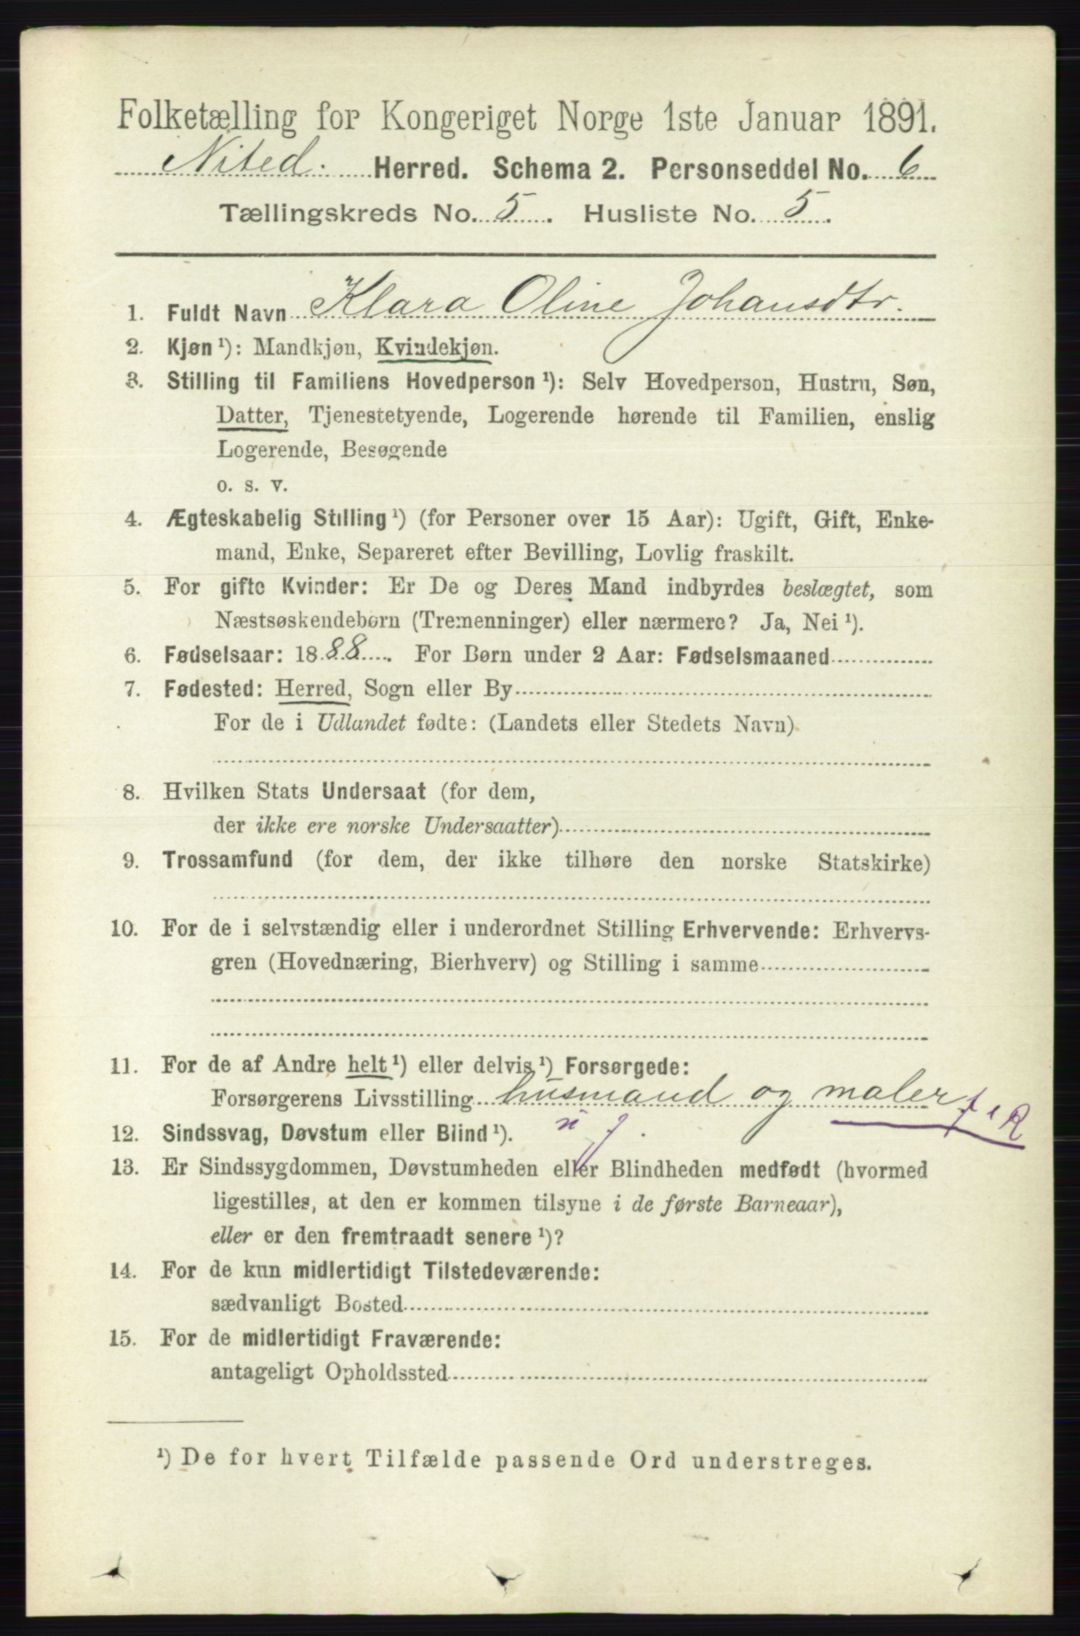 Folketælling for Kongeriget Norge 1ste Januar 1891.
Nited. Herred. Schema 2. Personseddel No. 6
Tællingskreds No. 5. Husliste No. 5.
1. Fuldt Navn Klara Oline Johansdtr.
2. Kjøn ¹): Mandkjøn, Kvindekjøn.
3. Stilling til Familiens Hovedperson ¹): Selv Hovedperson, Hustru, Søn,
Datter, Tjenestetyende, Logerende hørende til Familien, enslig
Logerende, Besøgende
o. s. v.
4. Ægteskabelig Stilling ¹) (for Personer over 15 Aar): Ugift, Gift, Enke-
mand, Enke, Separeret efter Bevilling, Lovlig fraskilt.
5. For gifte Kvinder: Er De og Deres Mand indbyrdes beslægtet, som
Næstsøskendebørn (Tremenninger) eller nærmere? Ja, Nei ¹).
6. Fødselsaar: 1888. For Børn under 2 Aar: Fødselsmaaned
7. Fødested: Herred, Sogn eller By
For de i Udlandet fødte: (Landets eller Stedets Navn)
8. Hvilken Stats Undersaat (for dem,
der ikke ere norske Undersaatter)
9. Trossamfund (for dem, der ikke tilhøre den norske Statskirke)
10. For de i selvstændig eller i underordnet Stilling Erhvervende: Erhvervs-
gren (Hovednæring, Bierhverv) og Stilling i samme
11. For de af Andre helt ¹) eller delvis ¹) Forsørgede:
Forsørgerens Livsstilling husmand og maler
12. Sindssvag, Døvstum eller Blind ¹).
13. Er Sindssygdommen, Døvstumheden eller Blindheden medfødt (hvormed
ligestilles, at den er kommen tilsyne i de første Barneaar),
eller er den fremtraadt senere ¹)?
14. For de kun midlertidigt Tilstedeværende:
sædvanligt Bosted
15. For de midlertidigt Fraværende:
antageligt Opholdssted
¹) De for hvert Tilfælde passende Ord understreges.